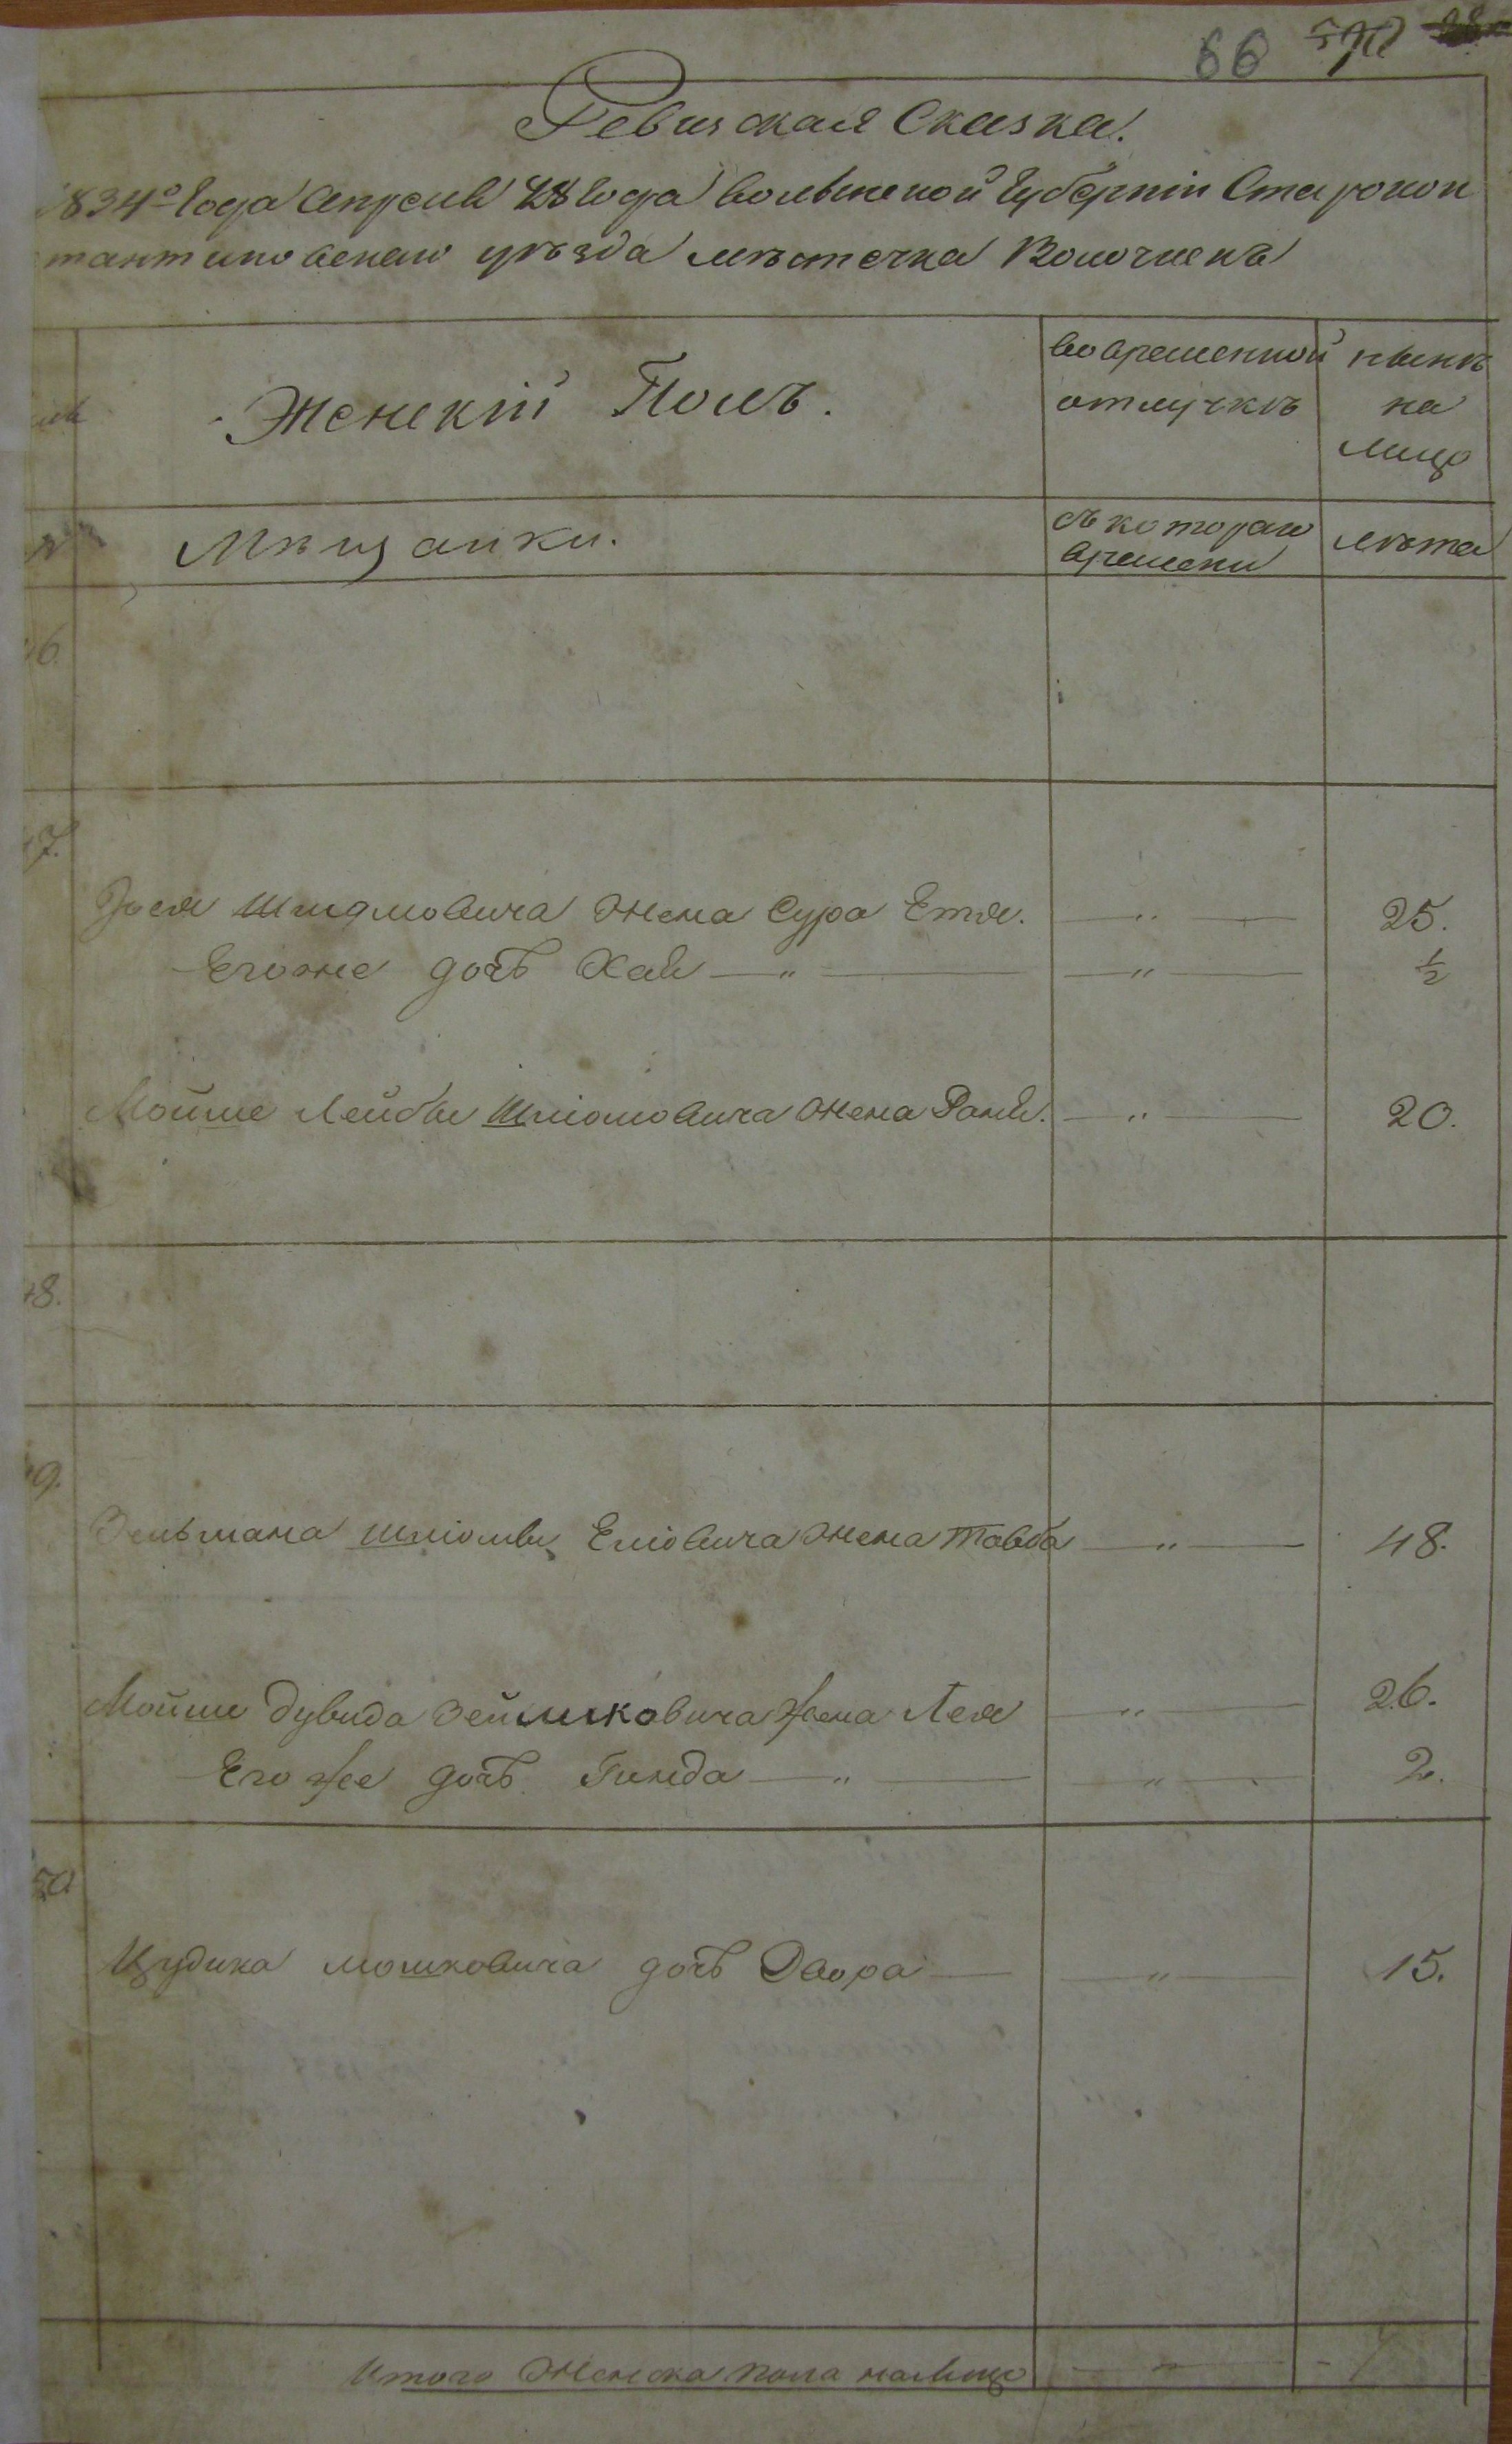 66
Ревизская Сказка.
1834го года Апреля 28 года Волынской Губерніи Старокон
стантиновскаго уѣзда мѣстечка Волочискъ
Женскій Полъ.
во временной нынѣ
отлучкѣ на
лицо
Мѣщанки.
съ котораго лѣта
времени
6.
7.
Зуся Шліомовича жена Сура Етя. — " — 25.
Его же дочь Хая — " — — " — 1/2
Мойше Лейбы Шліомовича жена Раня. — " — 20.
8.
9.
Зельмана Шліомы Еліовича жена Товба — " — 48.
Мойши Дувида Зейликовича жена Лея — " — 26.
Его же дочь Гинда — " — — " — 2.
50
Цудика Мошковича дочь Двора — — " — 15.
Итого Женска пола налицо — " — 7